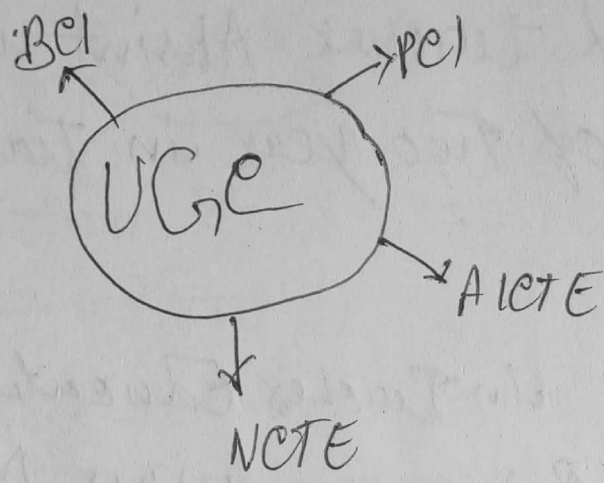 BCI
PCI
UGC
AICTE
NCTE